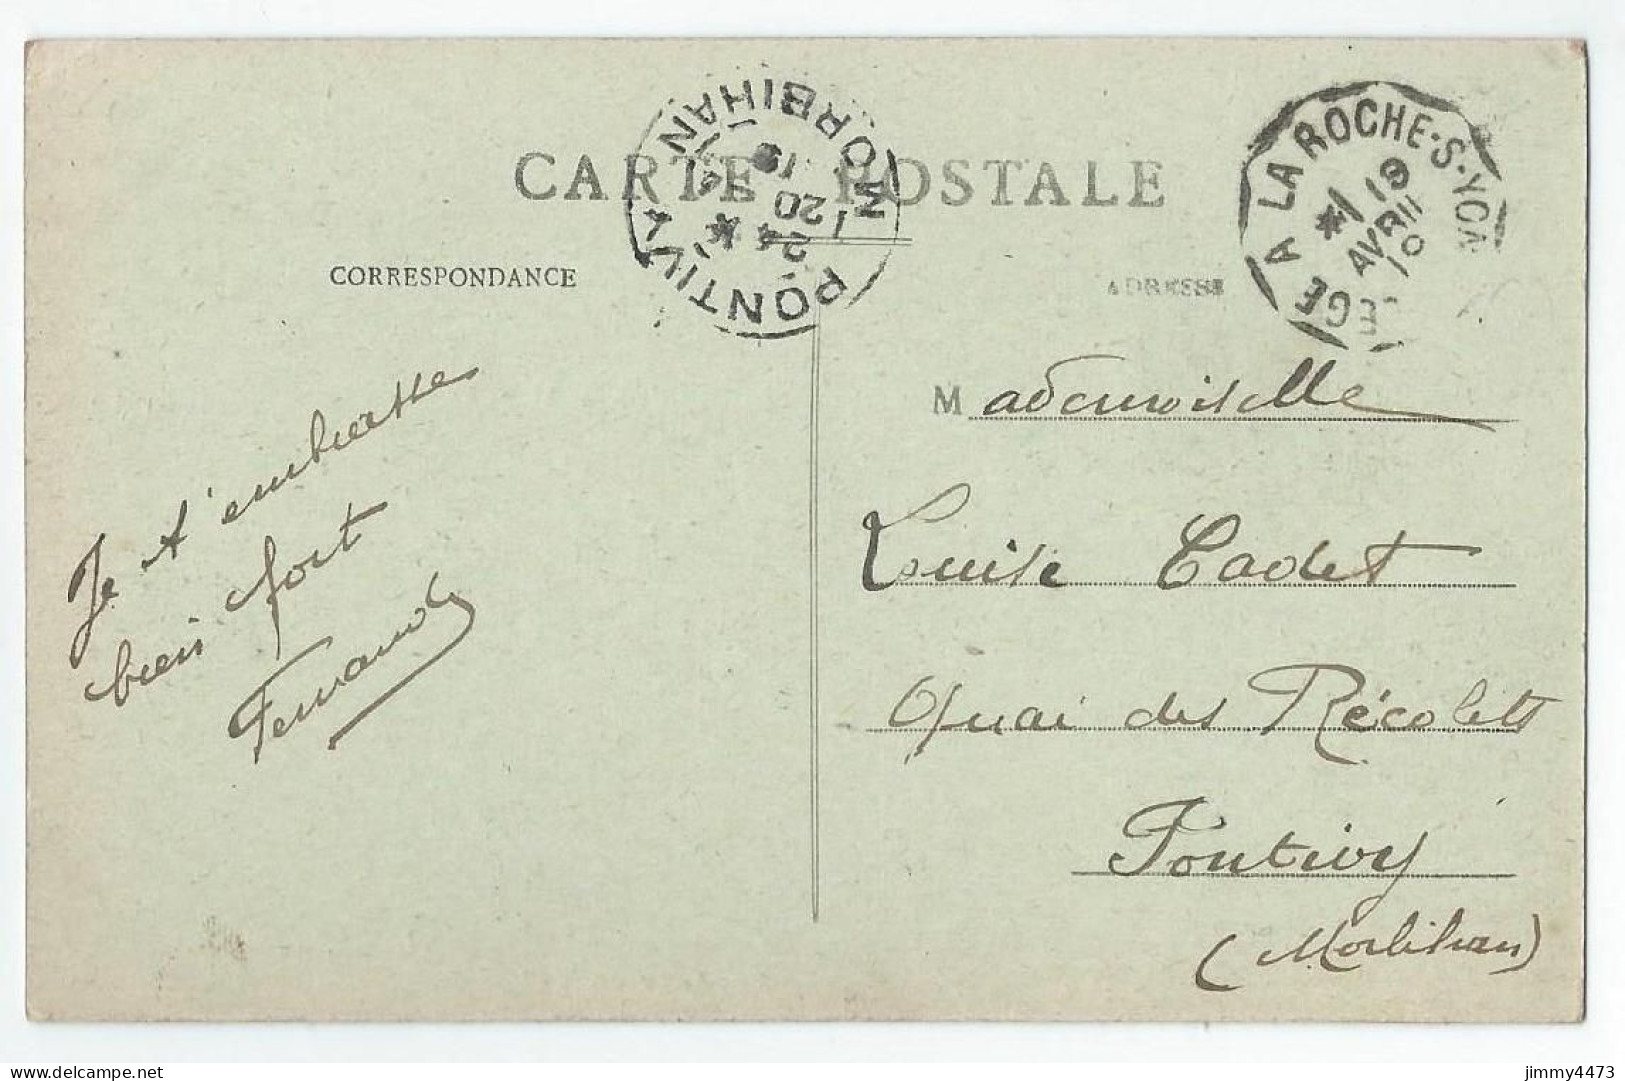 CARTE POSTALE
CORRESPONDANCE
ADRESSE
PONTIVY
MORBIHAN
24
20
19
LEGE A LA ROCHE-S-YON
19
AVRIL
10
Je t'embrasse
bien fort
Fernand
Mademoiselle
Louise Cadet
Quai des Récolets
Pontivy
(Morbihan)
delcampe.net
jimmy4473